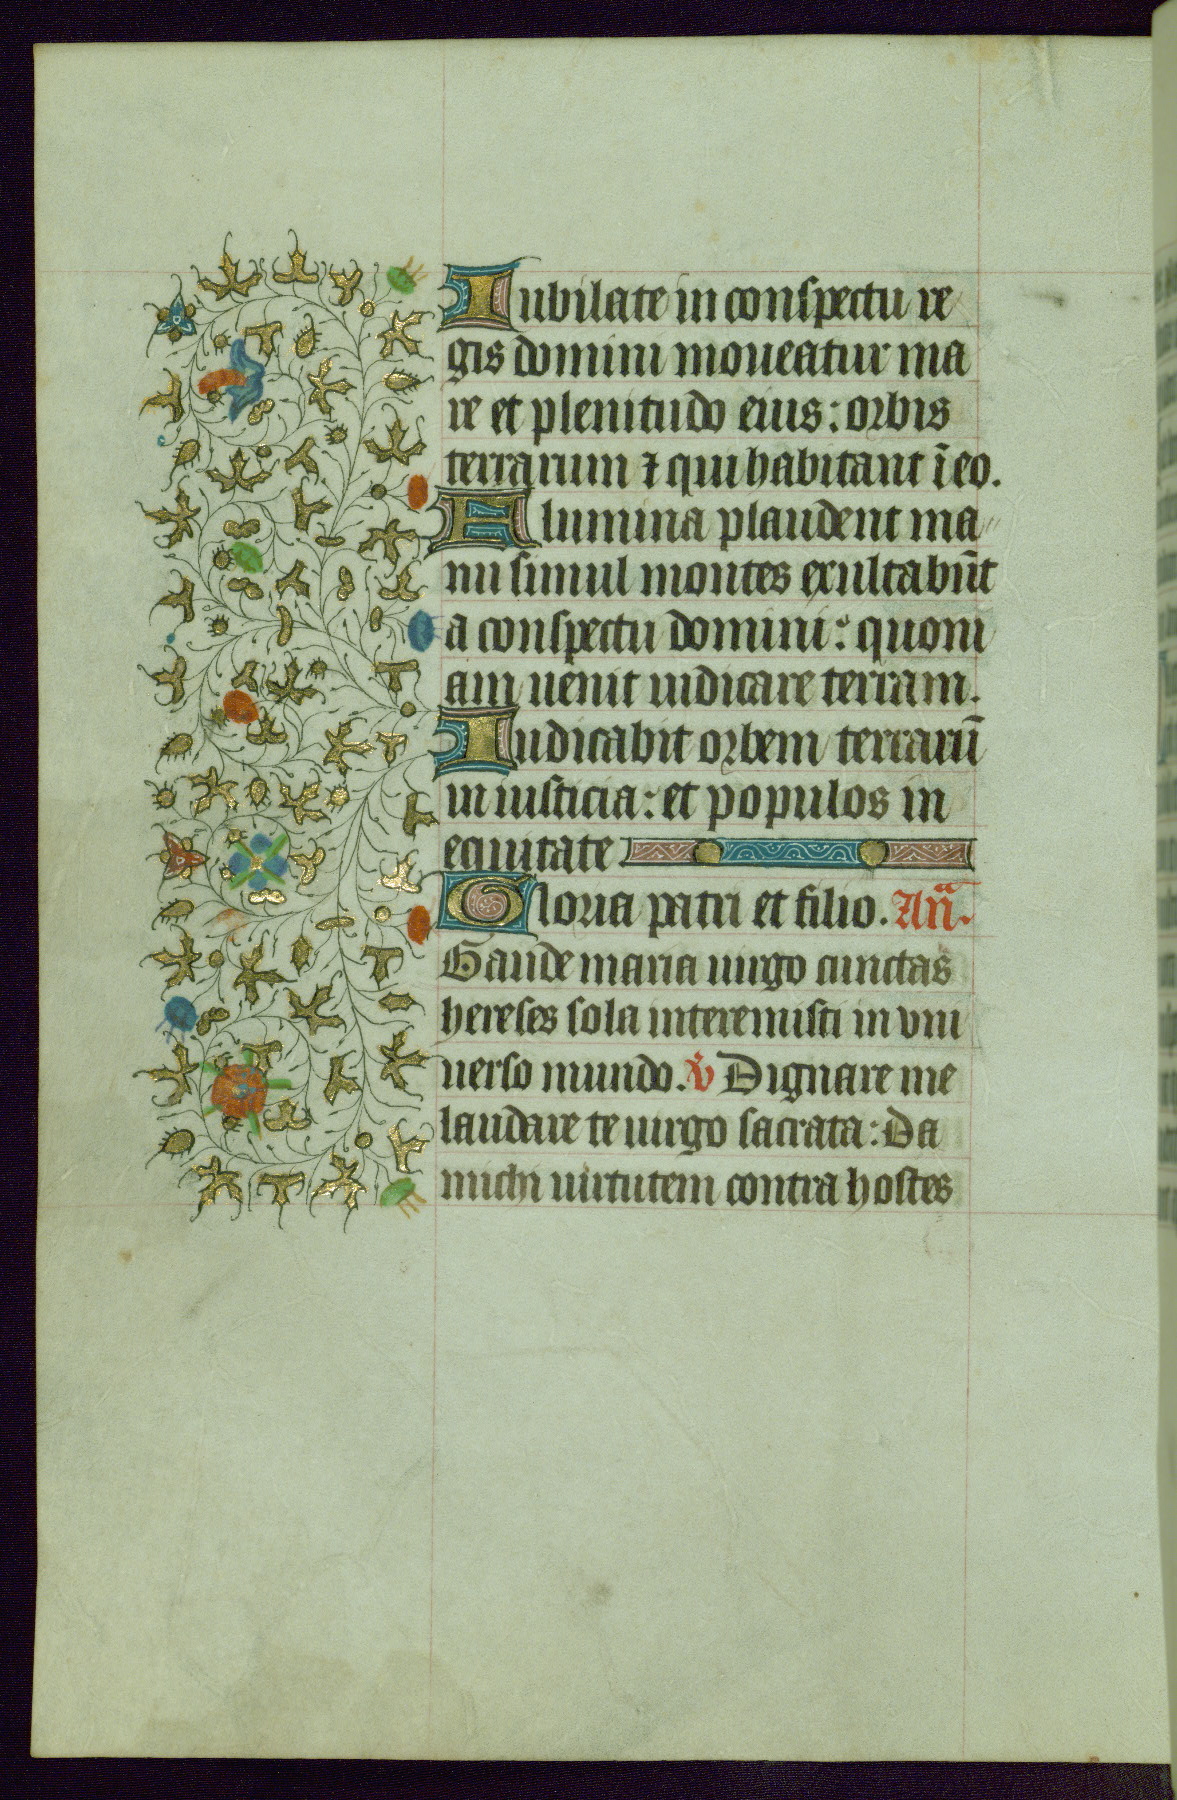 Iubilate in conspectu re
gis domini moueatur ma
re et plenitudo eius: orbis
terrarum ⁊ qui habitant ī eo.
Flumina plaudent ma
nu simul montes exultabūt
a conspectu domini: quoni
am uenit iudicare terram.
Iudicabit orbem terrarū
in iusticia: et populos in
equitate
Gloria patri et filio. Añ.
Gaude maria uirgo cunctas
hereses sola interemisti in vni
uerso mundo. v̄ Dignare me
laudare te uirgo sacrata: Da
michi uirtutem contra hostes